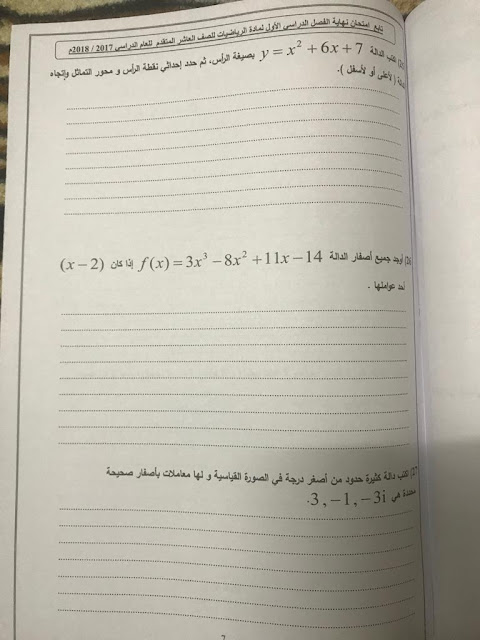 تابع امتحان نهاية الفصل الدراسي الأول لمادة الرياضيات للصف العاشر المتقدم للعام الدراسي 2017 / 2018م
اكتب الدالة y = x² + 6x + 7 بصيغة الرأس، ثم حدد إحداثي نقطة الرأس و محور التماثل وإتجاه
( لأعلى أو لأسفل ).
26) أوجد جميع أصفار الدالة f(x) = 3x³ − 8x² + 11x − 14 إذا كان (x − 2)
أحد عواملها .
27) اكتب دالة كثيرة حدود من أصغر درجة في الصورة القياسية و لها معاملات بأصفار صحيحة
محددة هي 3 , −1 , −3i .
7